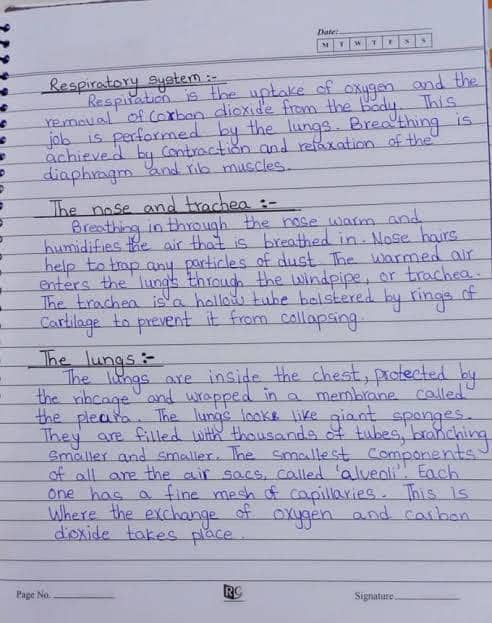 Date:
M T W T F S S
Respiratory system :-
Respiration is the uptake of oxygen and the
removal of Carbon dioxide from the body. This
job is performed by the lungs. Breathing is
achieved by Contraction and relaxation of the
diaphragm and rib muscles.
The nose and trachea :-
Breathing in through the nose warm and
humidifies the air that is breathed in. Nose hairs
help to trap any particles of dust. The warmed air
enters the lungs through the windpipe, or trachea.
The trachea is a hollow tube bolstered by rings of
Cartilage to prevent it from collapsing.
The lungs :-
The lungs are inside the chest, protected by
the ribcage and wrapped in a membrane called
the pleura. The lungs looks like giant sponges.
They are filled with thousands of tubes, branching
smaller and smaller. The smallest components
of all are the air sacs, called 'alveoli'. Each
one has a fine mesh of capillaries. This is
Where the exchange of oxygen and carbon
dioxide takes place.
Page No.
RG
Signature